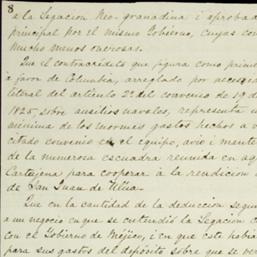 8
a la Legacion Neo-granadina i aprobad
principal por el mismo Gobierno, cuyas con
mucho menos onerosas.
Que el contracrédito que figura como prime
a favor de Colombia, arreglado por
literal del artículo 2º del convenio de 19 d
1825, sobre ausilios navales, representa
mínima de los inormes gastos hechos a v
citado convenio en el equipo, avio i mante
de la numerosa escuadra reunida en ag
Cartajena para cooperar á la rendicion
de San Juan de Ulúa.
Que en la cantidad de la deduccion segun
a un negocio en que se entendió la Legacion C
con el Gobierno de Méjico, i en que este habia
para sus gastos del depósito sobre que se ver